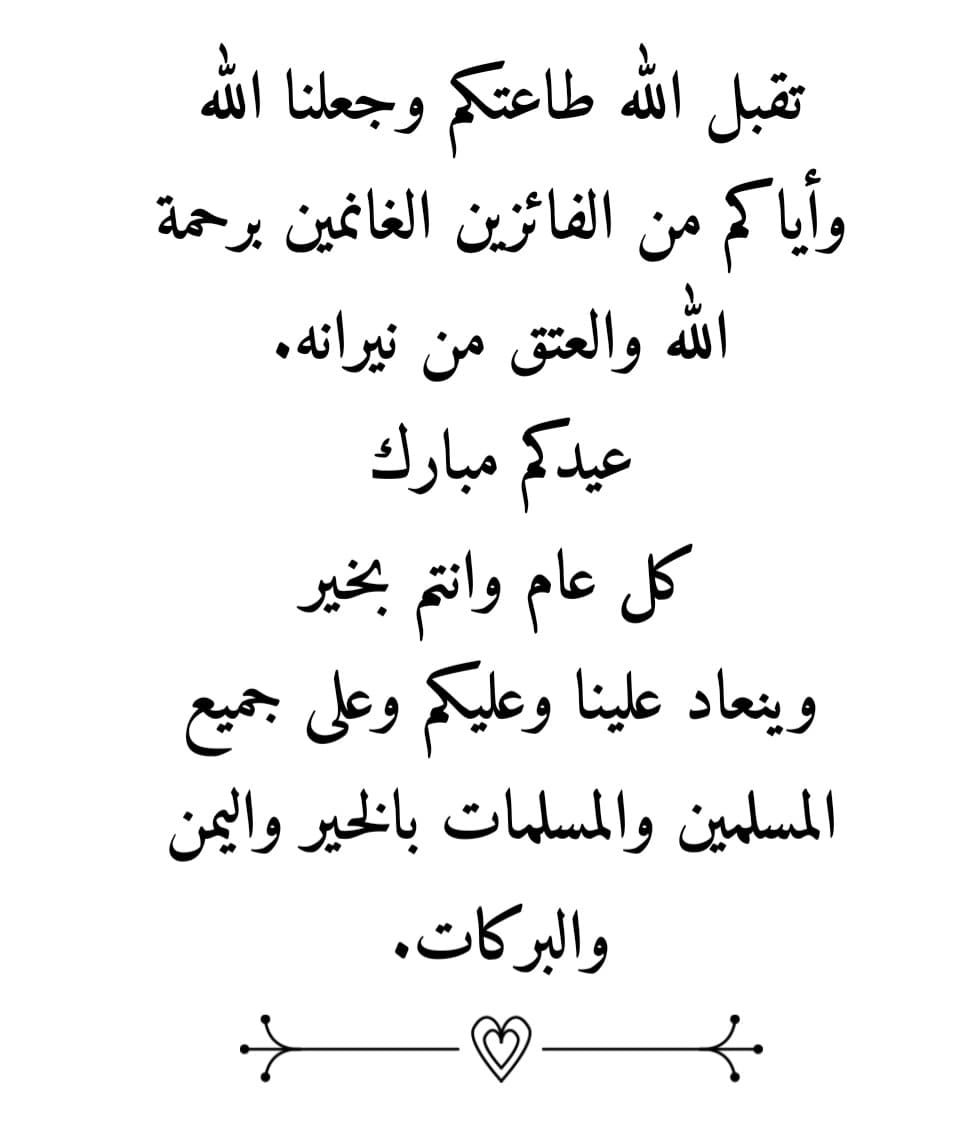 تقبل الله طاعتكم وجعلنا الله
وأياكم من الفائزين الغانمين برحمة
الله والعتق من نيرانه.
عيدكم مبارك
كل عام وانتم بخير
وينعاد علينا وعليكم وعلى جميع
المسلمين والمسلمات بالخير واليمن
والبركات.